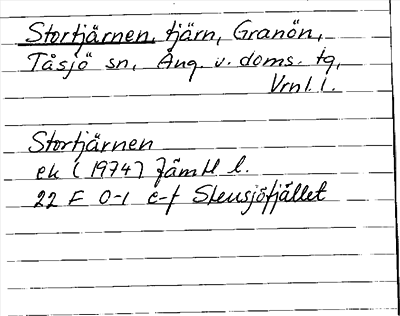 Stortjärnen, tjärn, Granön,
Tåsjö sn, Ång. v. doms. tg,
Vrnl. l.
Stortjärnen
ek (1974) Jämtl l.
22 F 0-1 e-f Stensjöfjället